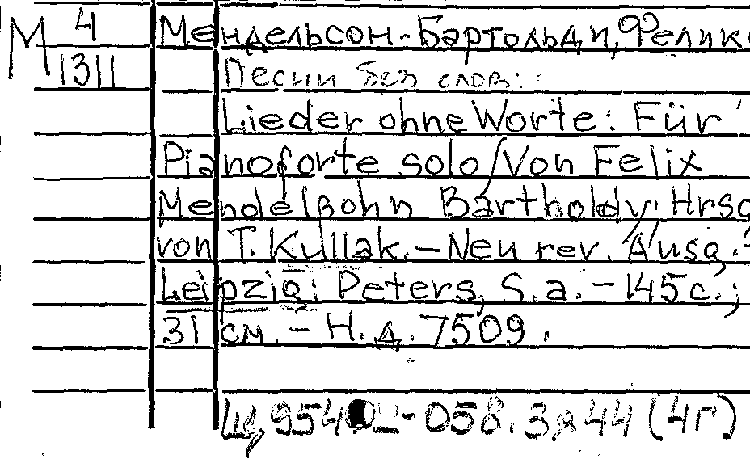 М 4 Мендельсон-Бартольди, Феликс
1311 Песни без слов.
Lieder ohne Worte: Für
Pianoforte solo/Von Felix
Mendelßohn Bartholdy. Hrsg
von T. Kullak.-Neu rev. Ausg.-
Leipzig: Peters, S.a.-145с.;
31 см.-Н.д. 7509.
(4г)